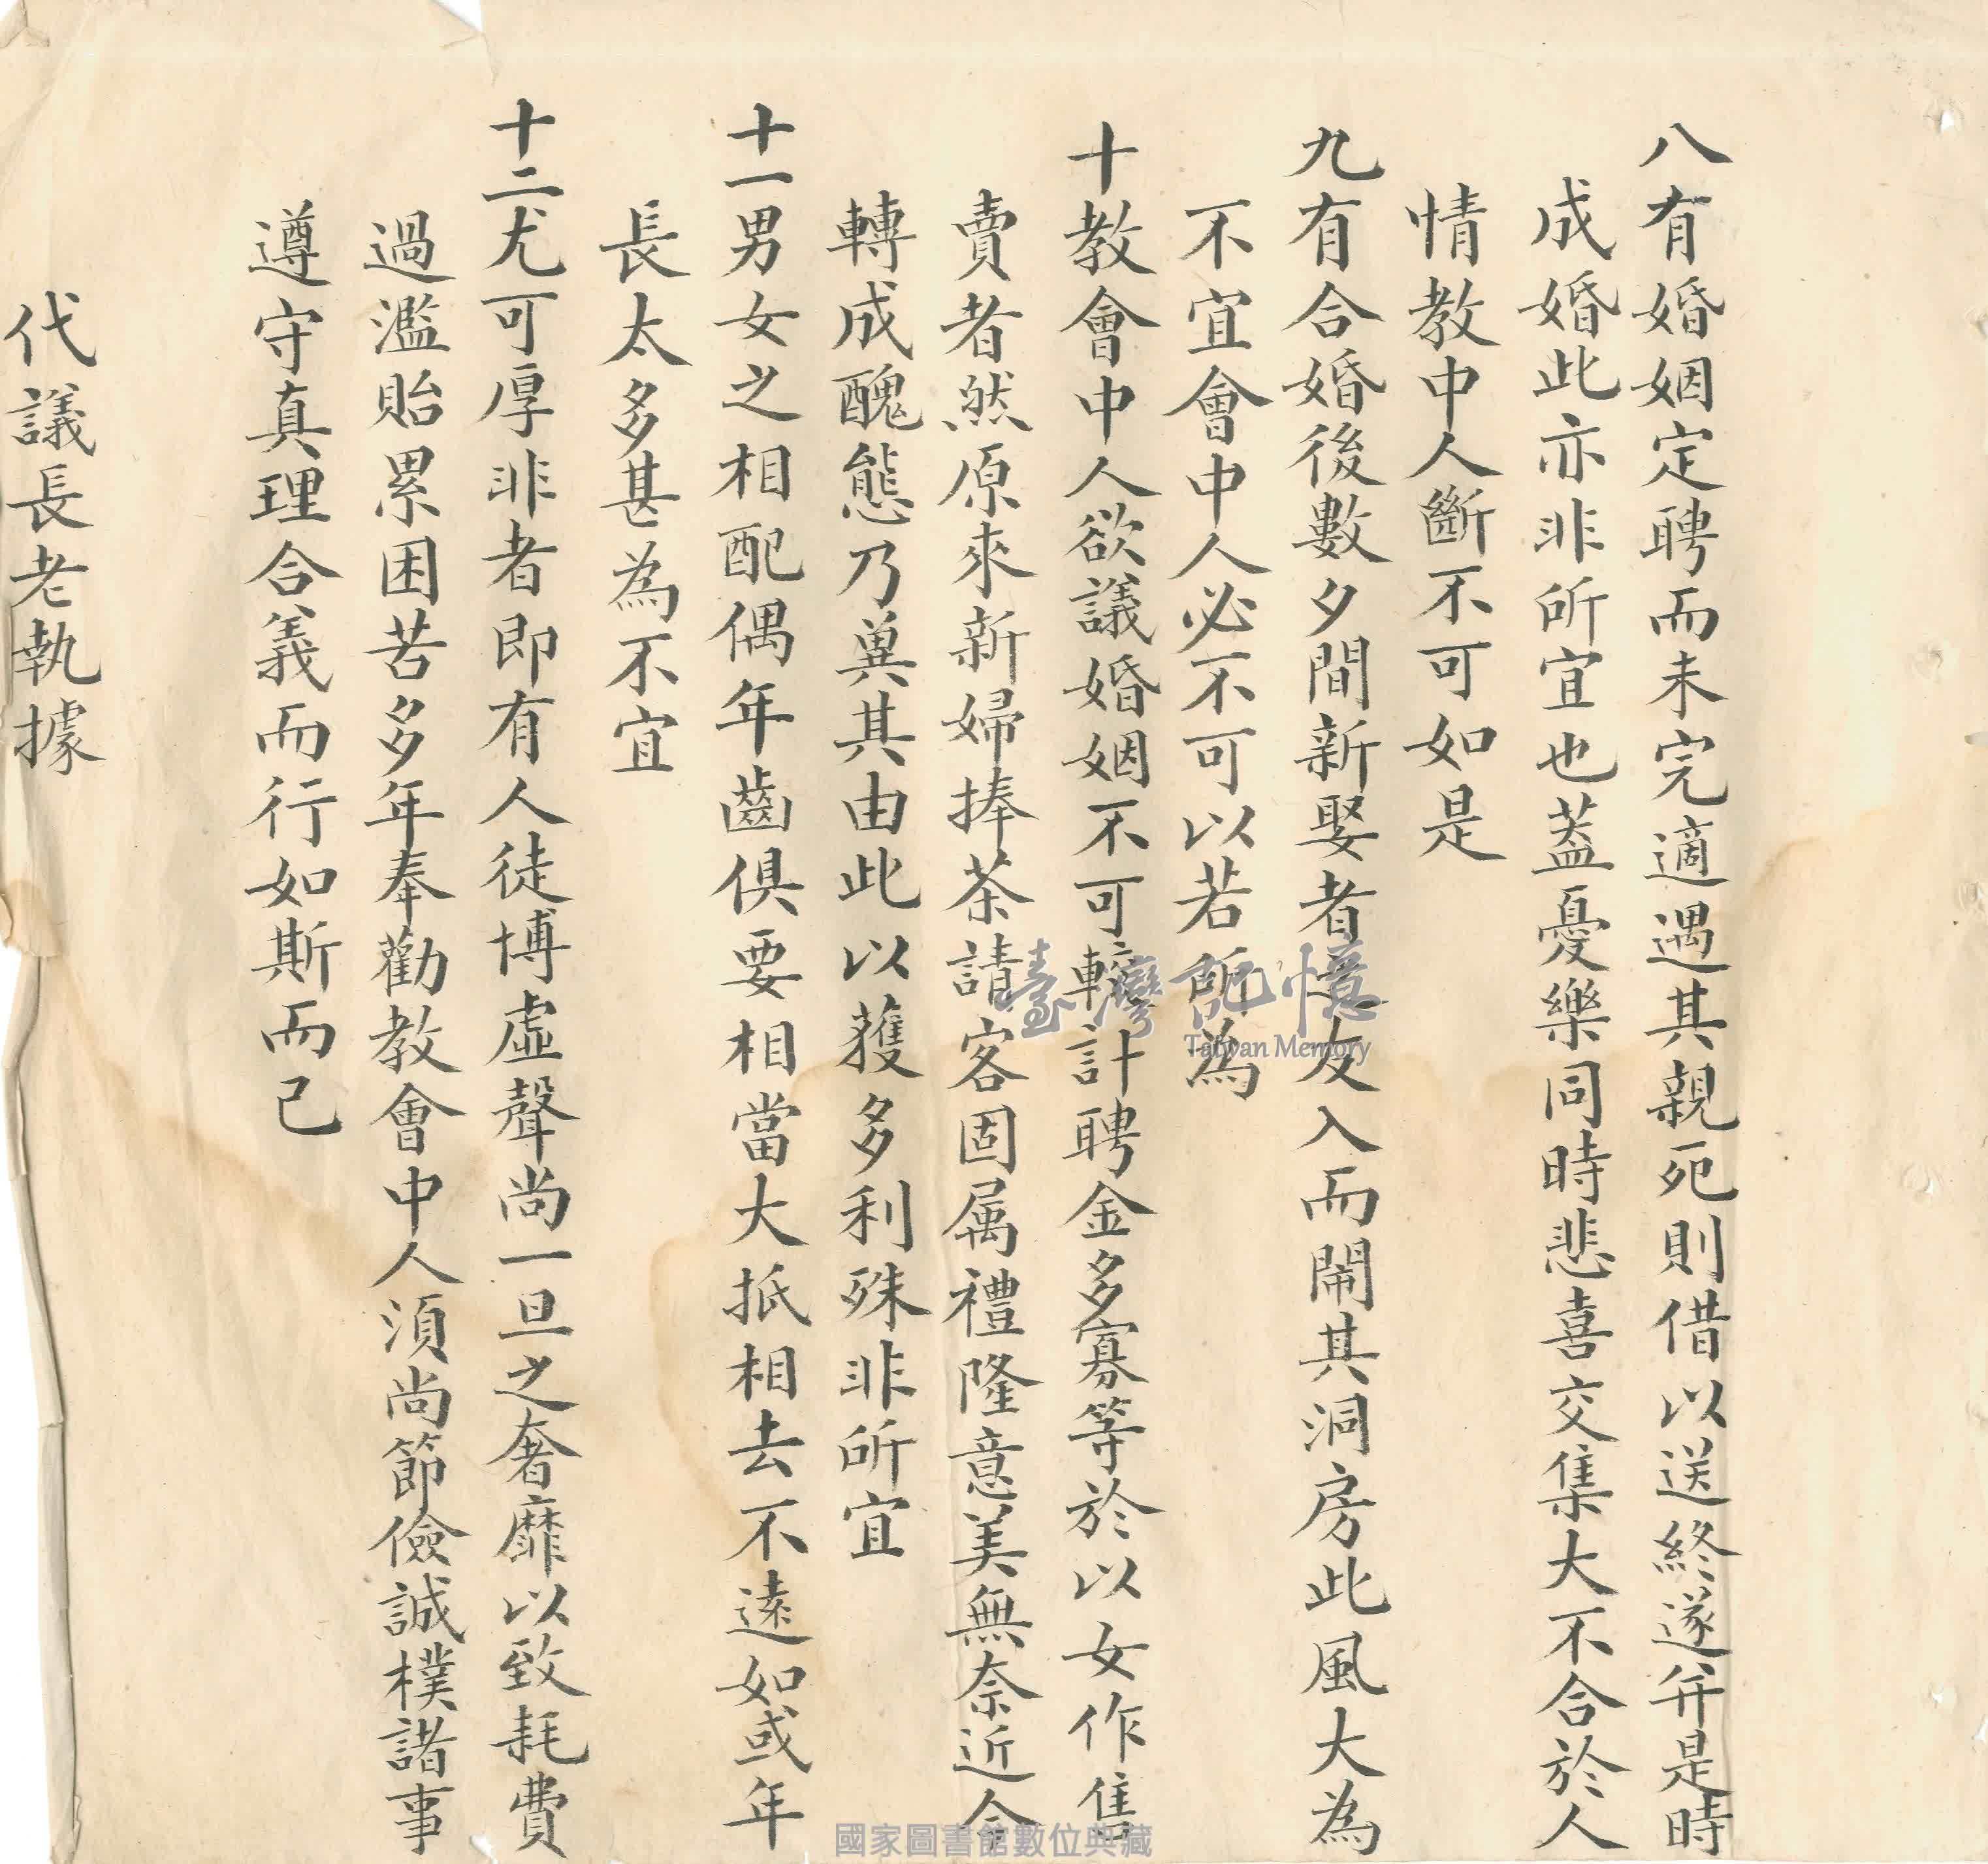 八有婚姻定聘而未完適遇其親死則借以送終遂并是時
成婚此亦非所宜也蓋憂樂同時悲喜交集大不合於人
情教中人斷不可如是
九有合婚後數夕間新娶者之友入而鬧其洞房此風大為
不宜會中人必不可以若所為
十教會中人欲議婚姻不可較計聘金多寡等於以女作售
賣者然原來新婦捧茶請客固属禮隆意美無奈近今
轉成醜態乃冀其由此以獲多利殊非所宜
十一男女之相配偶年齒俱要相當大抵相去不遠如或年
長太多甚為不宜
十二尤可厚非者即有人徒博虛聲尚一旦之奢靡以致耗費
過濫貽累困苦多年奉勸教會中人須尚節儉誠樸諸事
遵守真理合義而行如斯而已
代議長老執據
臺灣記憶
Taiwan Memory
國家圖書館數位典藏